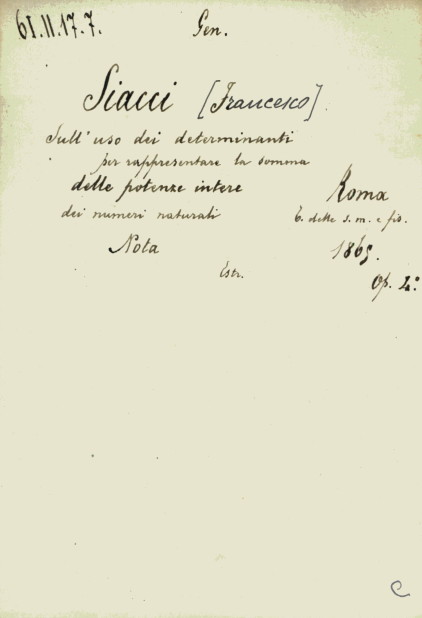 61.II.17.7.
Gen.
Siacci [Francesco]
Sull'uso dei determinanti
per rappresentare la somma
delle potenze intere
dei numeri naturali
Roma
T. delle s. m. e fis.
Nota
1865.
Estr.
Op. 4°
C